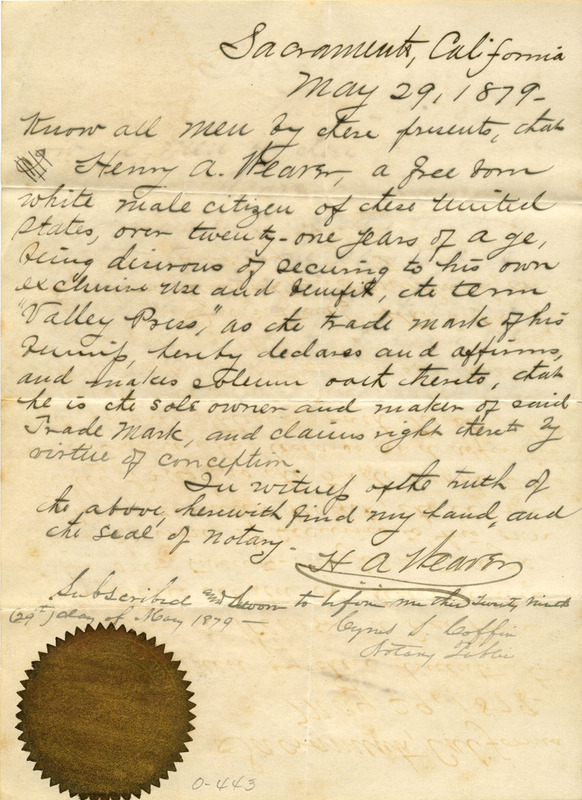 Sacramento, California
May 29, 1879-
Know all men by these presents, that
Henry A. Weaver, a free born
white male citizen of these United
States, over twenty-one years of age,
being disirous of securing to his own
exclusive use and benefit, the term
"Valley Press," as the trade mark of his
hereby declares and affirms,
and makes solemn oath thereto, that
he is the sole owner and maker of said
Trade Mark, and claims right thereto by
virtue of conception
In witness of the truth of
the above, herewith find my hand, and
the seal of notary-
H A Weaver
Subscribed and sworn to before me this twenty ninth
(29th) day of May 1879-
Cyrus S. Coffin
Notary Public
0-443